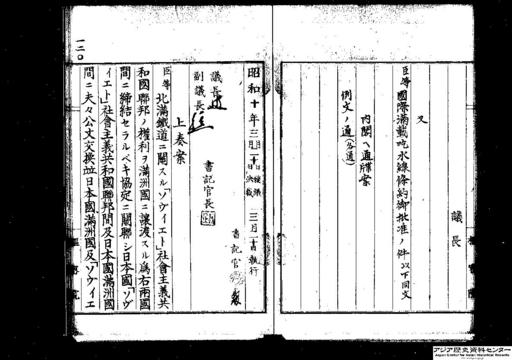 議長
又
臣等國際滿載吃水線條約御批准ノ件 以下同文
内閣ヘ通牒案
例文ノ通(各通)
昭和十年三月
三月
執行
議長
副議長
書記官長
書記官
上奏案
臣等北滿鐵道ニ關スル「ソヴィエト」社會主義共
和國聯邦ノ權利ヲ滿洲國ニ讓渡スル爲右兩國
間ニ締結セラルベキ協定ニ關聯シ日本國「ソヴ
ィエト」社會主義共和國聯邦間及日本國滿洲國
間ニ夫々公文交換竝日本國滿洲國及「ソヴィエ
一二〇
アジア歴史資料センター
Japan Center for Asian Historical Records